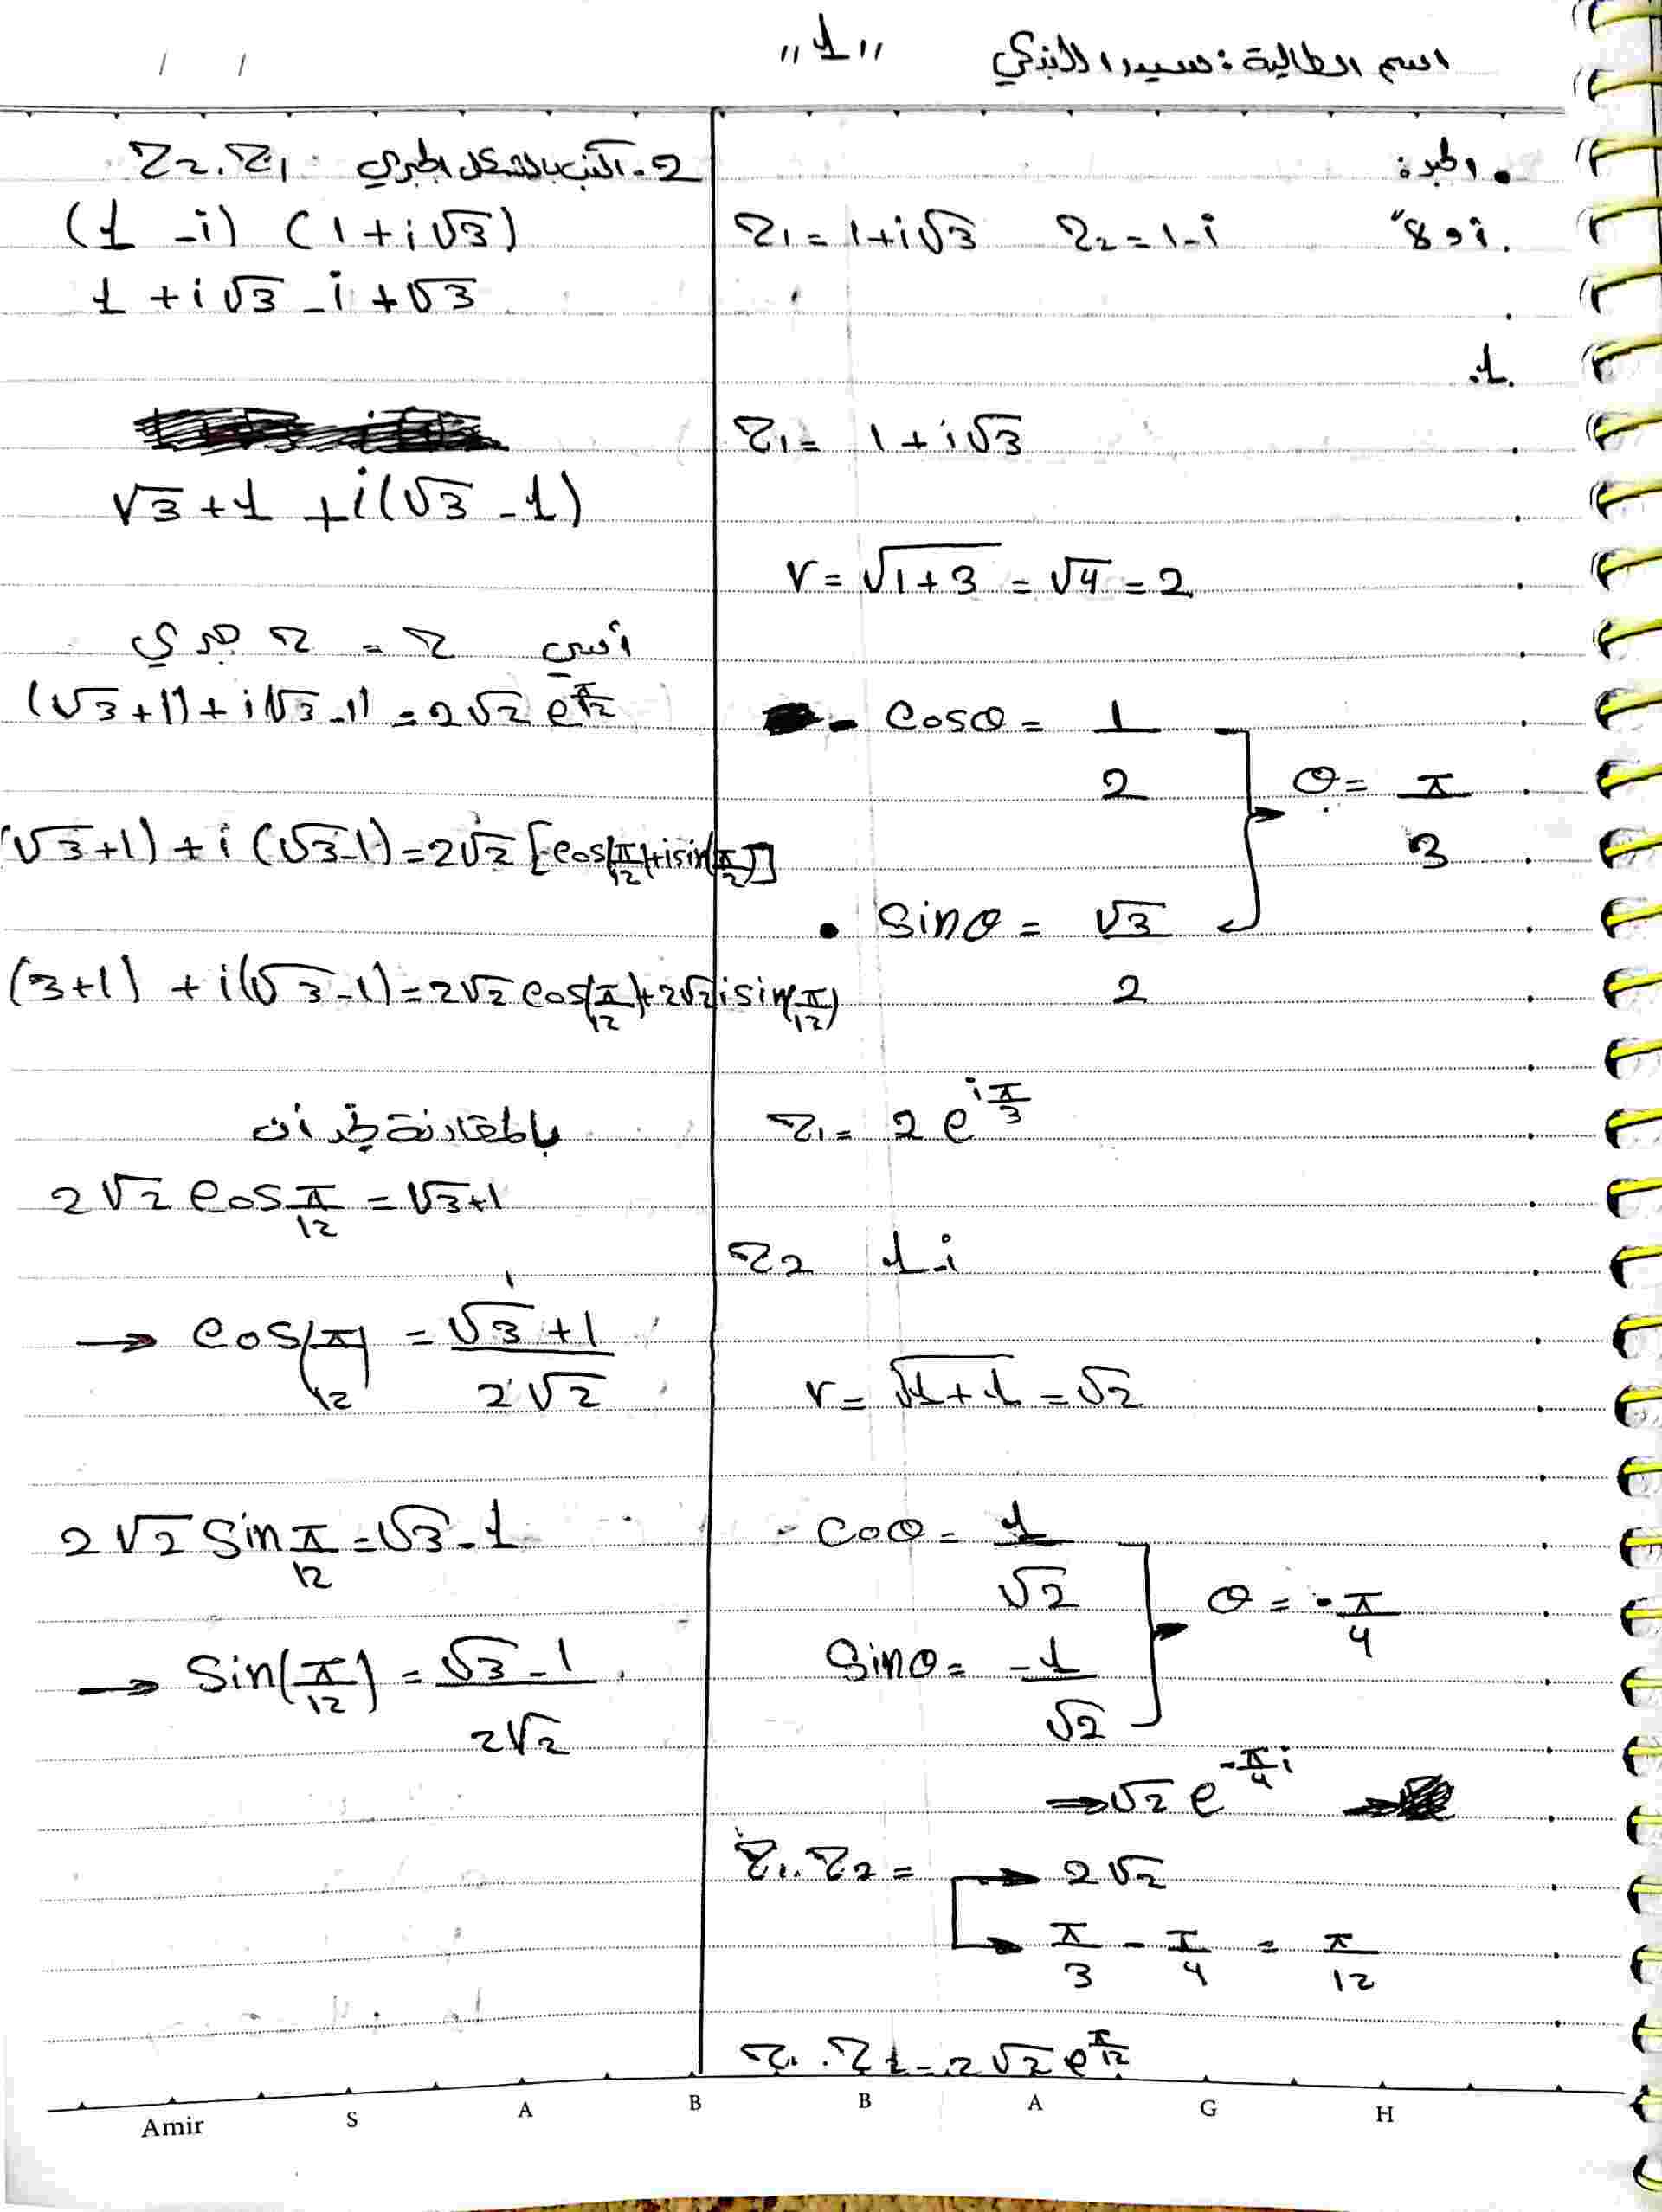 اسم الطالبة : سيدرا البندكي
"1"
/ /
• الجبر :
z1 = 1+i√3 z2 = 1-i
1.
z1 = 1+i√3
r = √1+3 = √4 = 2
- cosθ = 1/2
• sinθ = √3/2
θ = π/3
z1 = 2 e^iπ/3
z2 1-i
r = √1+1 = √2
- coθ = 1/√2
sinθ = -1/√2
θ = -π/4
→ √2 e^-π/4 i
z1.z2 = → 2√2
→ π/3 - π/4 = π/12
= 2√2 e^π/12
2. اكتب بالشكل الجبري z2.z1
(1 -i) (1+i√3)
1 +i√3 -i +√3
√3+1 +i(√3 -1)
أسي z = z جبري
(√3+1)+i(√3-1) = 2√2 e^π/12
(√3+1)+i(√3-1) = 2√2 [cos(π/12)+isin(π/12)]
(3+1) +i(√3-1) = 2√2 cos(π/12)+2√2 isin(π/12)
بالمقارنة نجد أن
2√2 cos π/12 = √3+1
→ cos(π/12) = √3+1/2√2
2√2 sin π/12 = √3-1
→ sin(π/12) = √3-1/2√2
Amir S A B B A G H